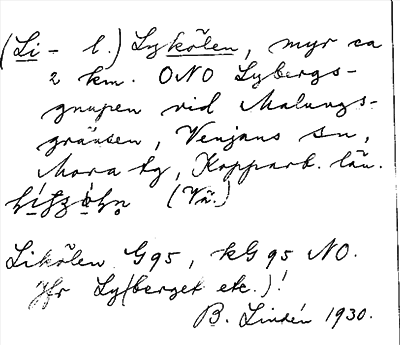 (Li- l.) Lykölen, myr ca
2 km. ONO Lybergs-
gnupen vid Malungs-
gränsen, Venjans sn,
Mora tg, Kopparb. län.
(Vä.)
Likölen G95, kG95 NO.
Jfr Ly(berget etc.)!
B. Lindén 1930.